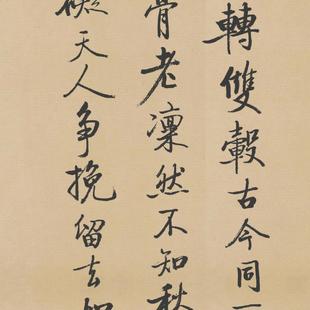 轉雙轂古今同一
骨老凜然不知秋
礙天人爭挽留去如